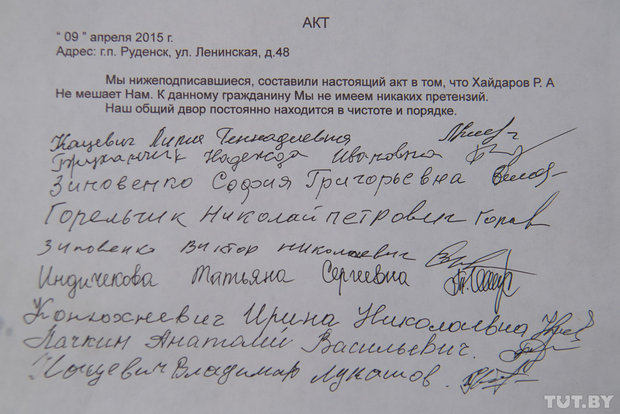 АКТ
" 09 " апреля 2015 г.
Адрес: г.п. Руденск, ул. Ленинская, д.48
Мы нижеподписавшиеся, составили настоящий акт в том, что Хайдаров Р. А
Не мешает Нам. К данному гражданину Мы не имеем никаких претензий.
Наш общий двор постоянно находится в чистоте и порядке.
Кацевич Лилия Геннадиевна
Надежда Ивановна
Зиновенко София Григорьевна
Горельчик Николай Петрович
Зиновенко Виктор Николаевич
Индичекова Татьяна Сергеевна
Конюхневич Ирина Николаевна
Лачкин Анатолий Васильевич.
Кацевич Владимир
TUT.BY